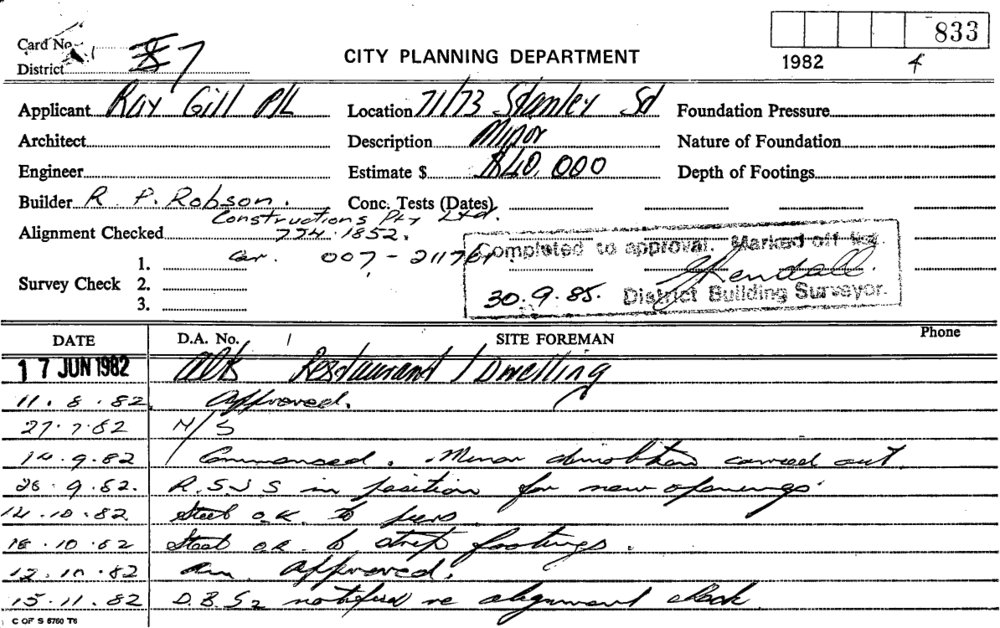 833
Card No.
District 7
CITY PLANNING DEPARTMENT
1982 4
Applicant Ray Gill P/L Location 71/73 Stanley Sd Foundation Pressure
Architect Description Minor Nature of Foundation
Engineer Estimate $ $40,000 Depth of Footings
Builder R. P. Robson. Conc. Tests (Dates)
Constructions Pty Ltd.
Alignment Checked 774.1852.
Completed to approval. Marked off list.
1. Car. 007-211761
Survey Check 2.
30.9.85. District Building Surveyor.
3.
DATE D.A. No. SITE FOREMAN Phone
17 JUN 1982 Alts Restaurant / Dwelling
11.8.82 Approved.
27.7.82 N/S
14.9.82 Commenced. Minor demolition carried out.
28.9.82. R.S.J's in position for new openings.
14.10.82 Steel O.K. to piers.
18.10.82 Steel O.K. to strip footings.
12.10.82 Approved.
15.11.82 D.B.S2 notified re alignment check
C OF S 5760 T6